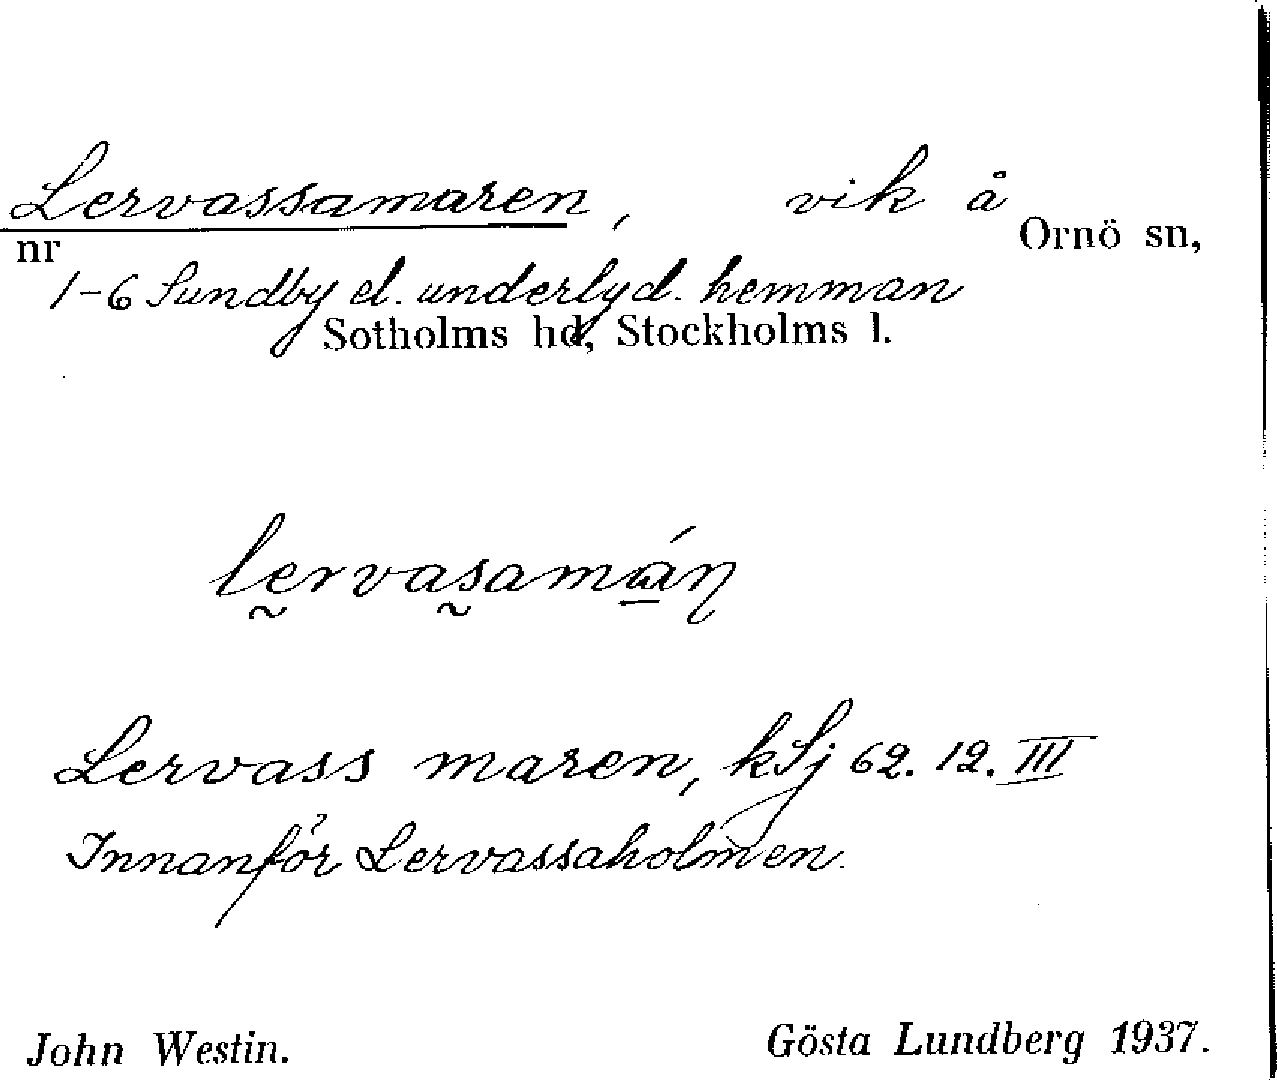 Lervassamaren, vik å
nr Ornö sn,
1-6 Sundby el. underlyd. hemman
Sotholms hd, Stockholms l.
lervasamáŋ
Lervass maren, kSj 62. 12. III
Innanför Lervassaholmen.
John Westin. Gösta Lundberg 1937.